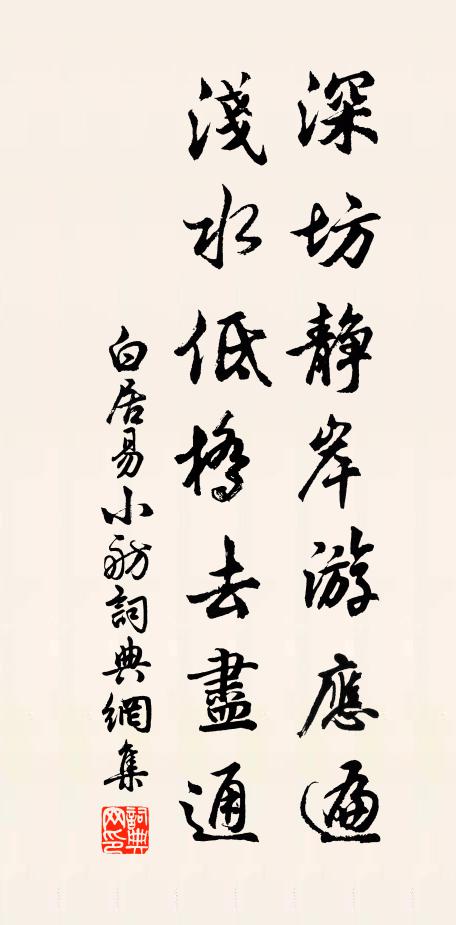 深坊靜岸游應遍
淺水低橋去盡通
白居易小舫詞典網集
詞典網印